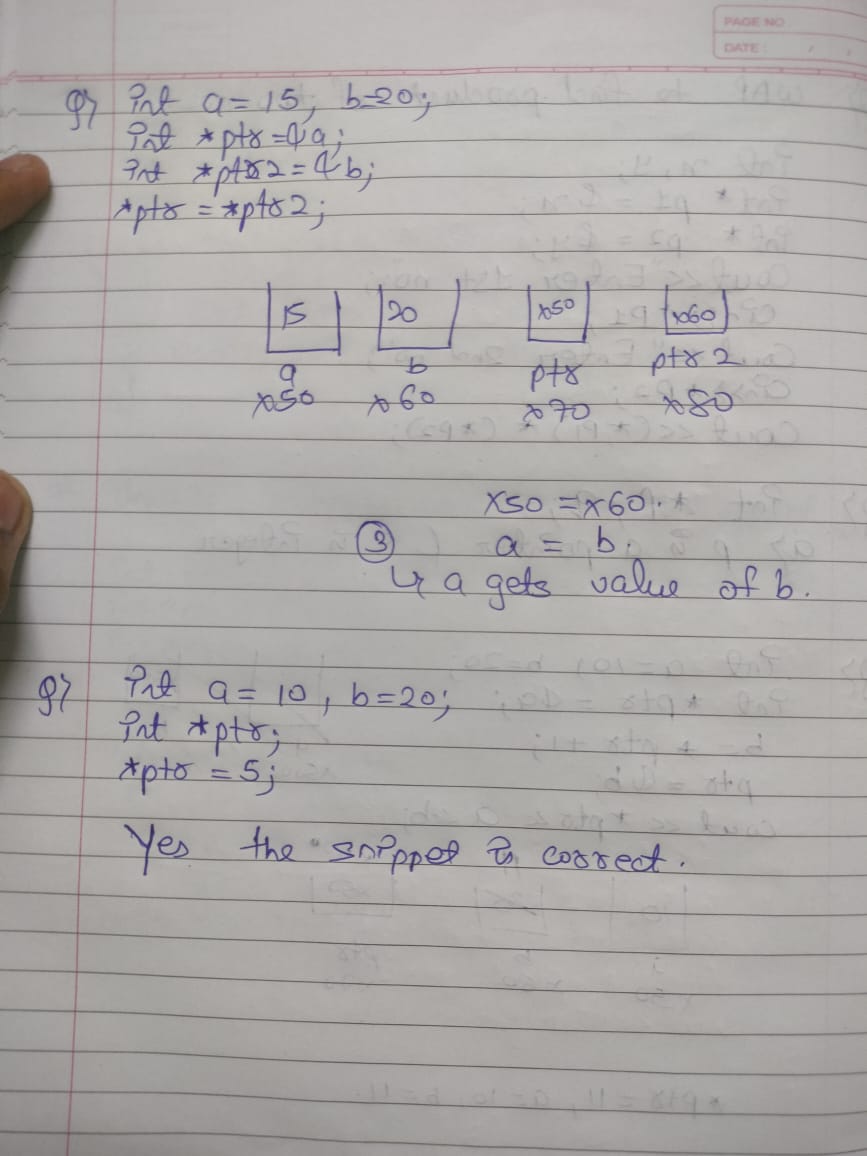 PAGE NO
DATE :
Q) int a = 15, b=20;
int *ptr = &a;
int *ptr2 = &b;
*ptr = *ptr2;
15 20 x50 x60
a b ptr ptr 2
x50 x60 x70 x80
x50 = x60.
③ a = b.
↳ a gets value of b.
Q) int a = 10, b = 20;
int *ptr;
*ptr = 5;
Yes the snippet is correct.